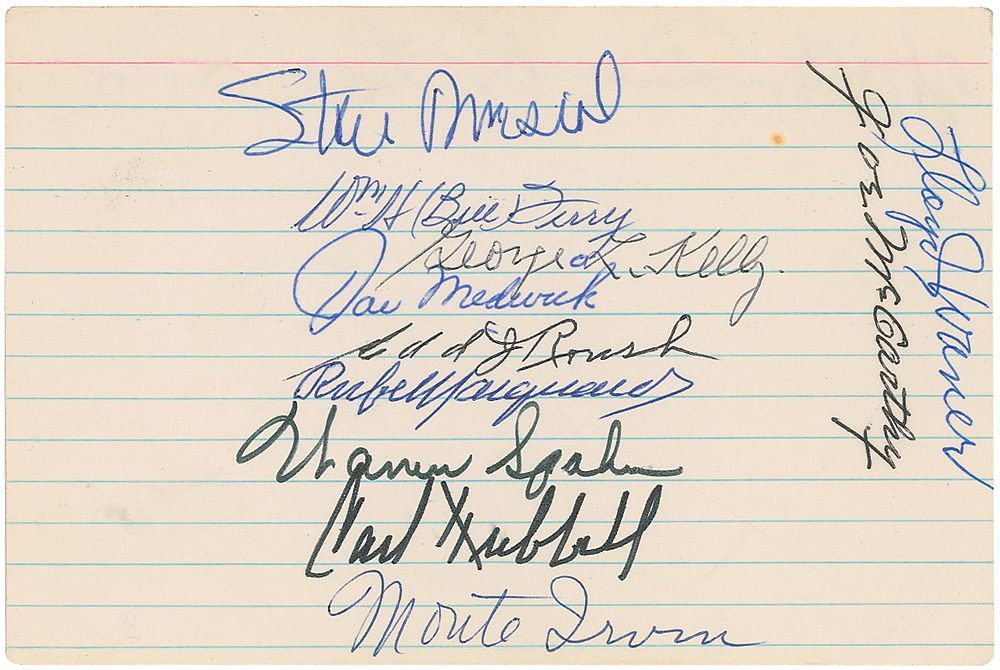 Stan Musial
Wm H (Bill Terry
George L. Kelly.
Joe Medwick
Edd J Roush
Rube Marquard
Warren Spahn
Carl Hubbell
Monte Irvin
Joe McCarthy
Lloyd Waner